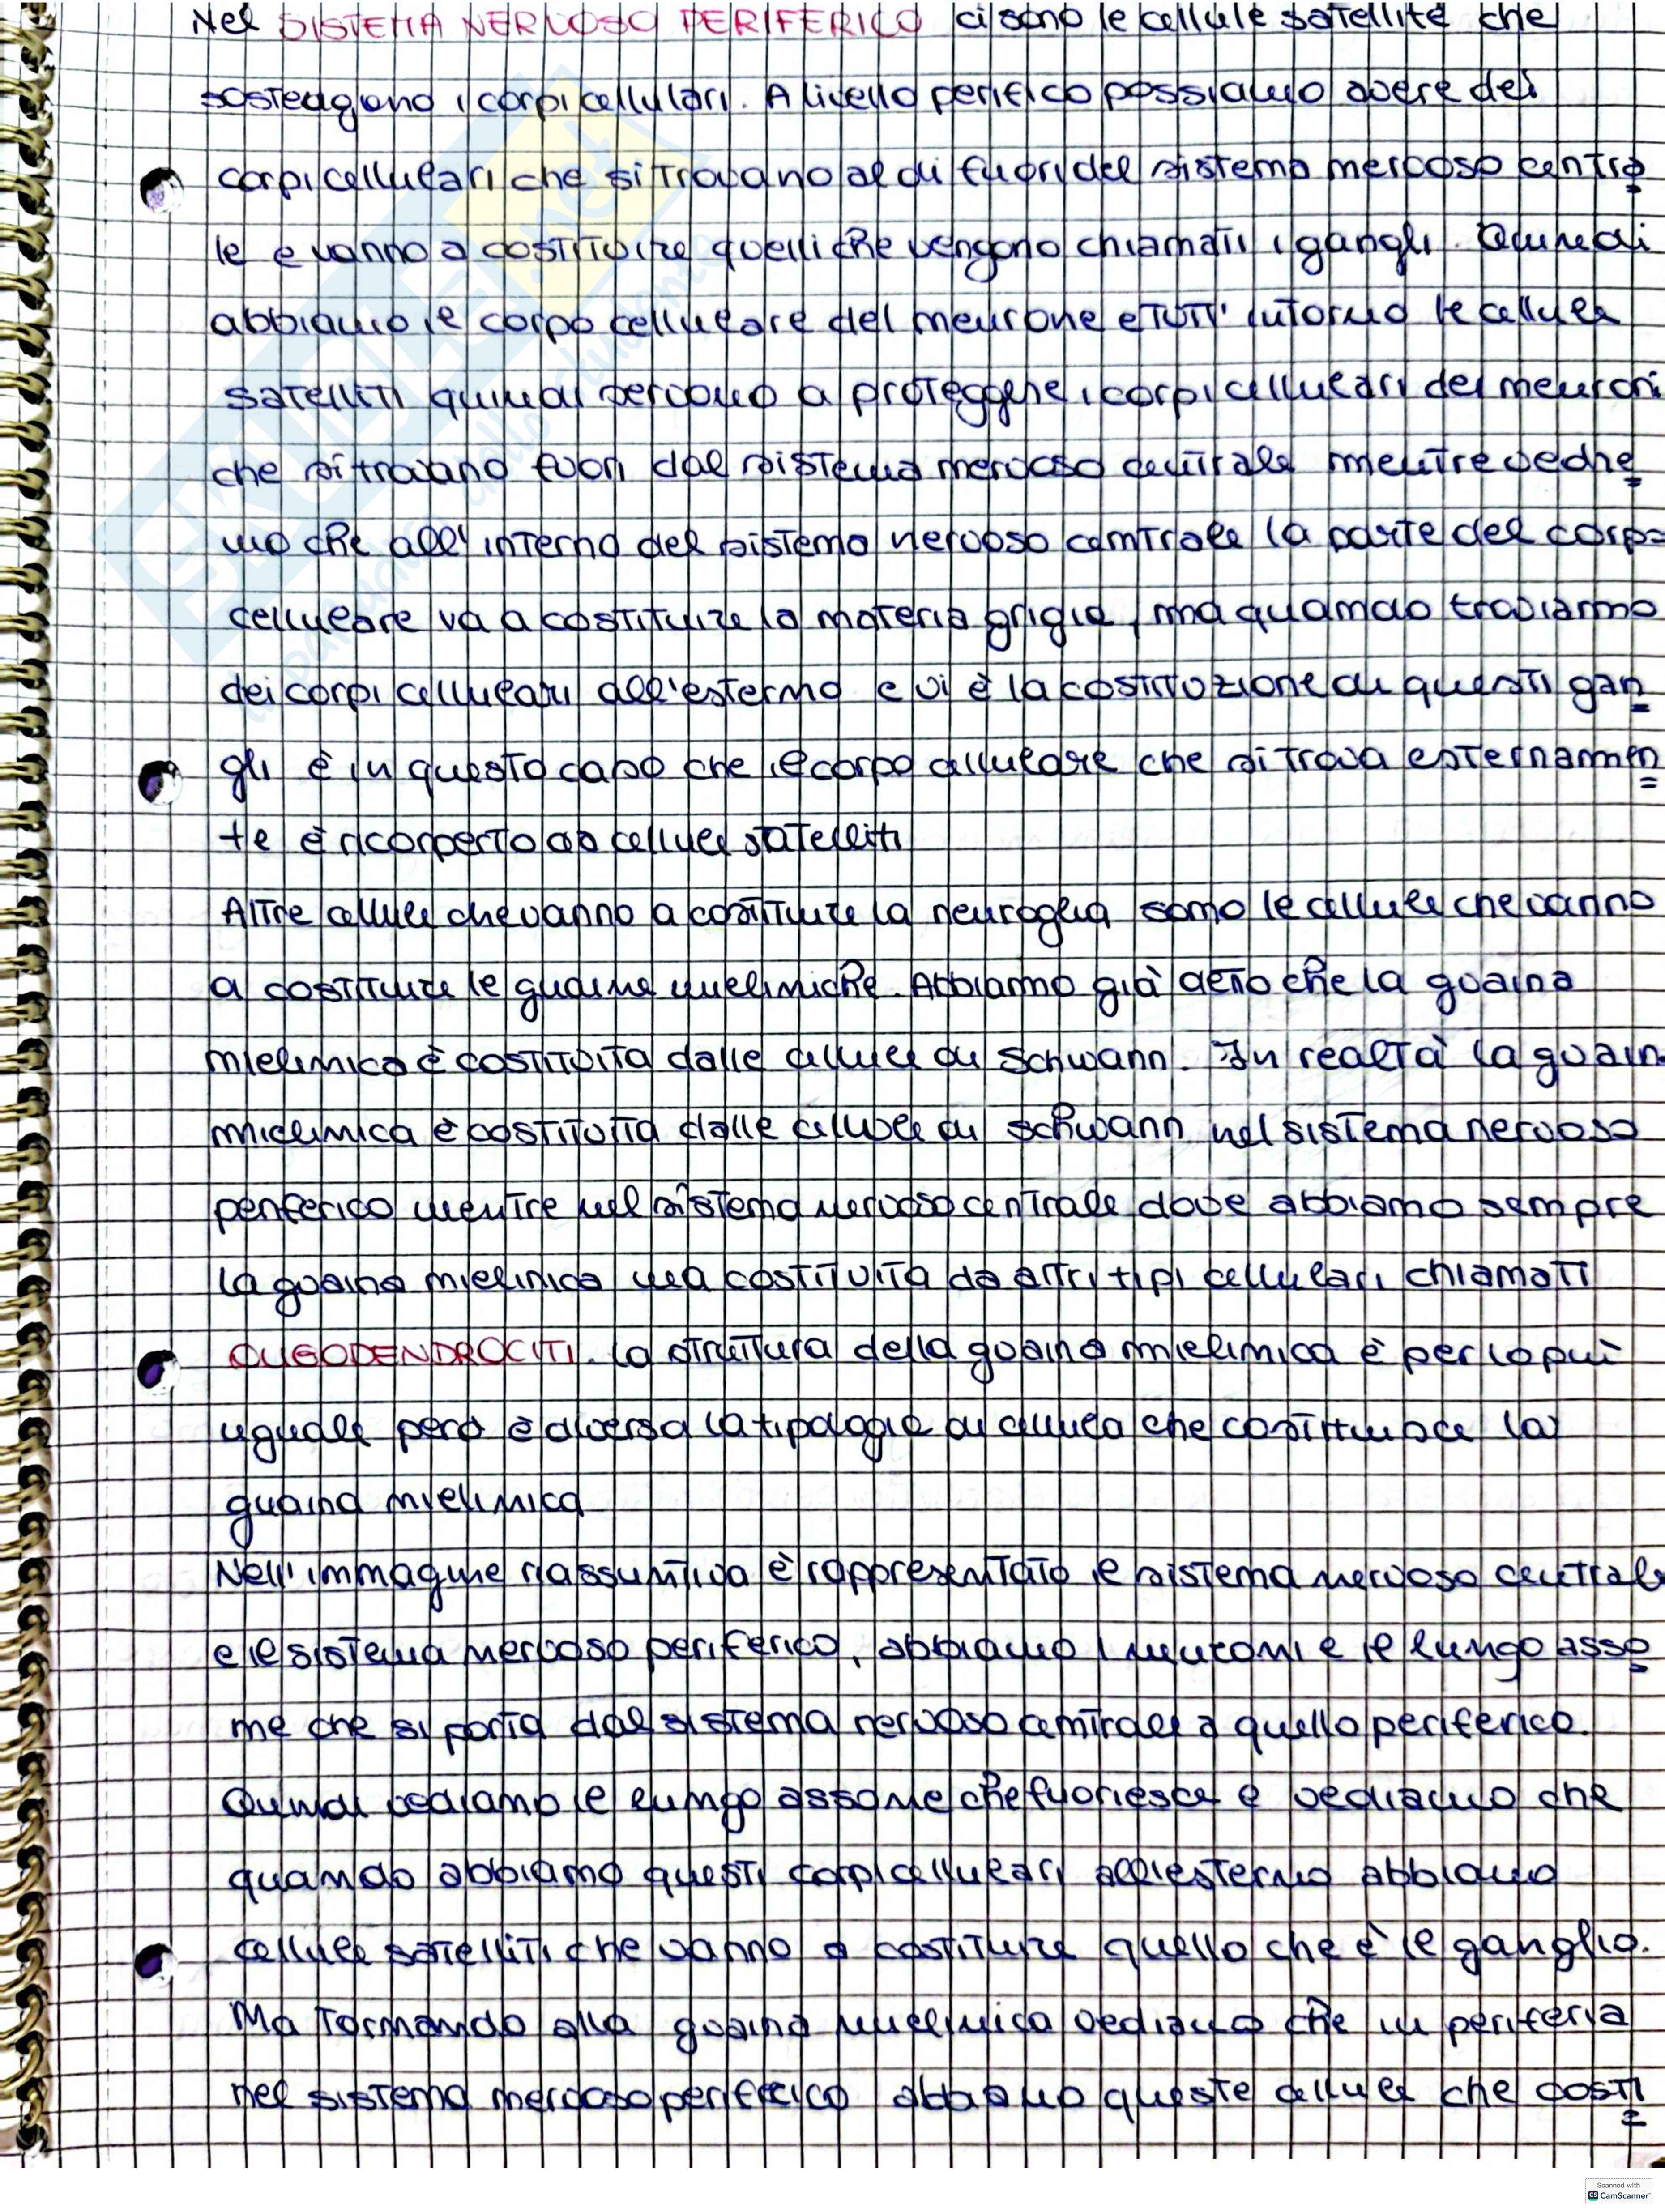 Nel SISTEMA NERVOSO PERIFERICO ci sono le cellule satellite che
sostengono i corpi cellulari. A livello periferico possiamo avere dei
corpi cellulari che si trovano al di fuori del sistema nervoso centra
le e vanno a costituire quelli che vengono chiamati i gangli. Quindi
abbiamo il corpo cellulare del neurone e tutt' intorno le cellule
satelliti quindi servono a proteggere i corpi cellulari dei neuroni
che si trovano fuori dal sistema nervoso centrale mentre vedre
mo che all' interno del sistema nervoso centrale la parte del corpo
cellulare va a costituire la materia grigia, ma quando troviamo
dei corpi cellulari all'esterno e vi è la costituzione di questi gan
gli è in questo caso che il corpo cellulare che si trova esternamen
te è ricoperto da cellule satelliti
Altre cellule che vanno a costituire la neuroglia sono le cellule che vanno
a costituire le guaine mieliniche. Abbiamo già detto che la guaina
mielinica è costituita dalle cellule di Schwann. In realtà la guain
mielinica è costituita dalle cellule di Schwann nel sistema nervoso
periferico mentre nel sistema nervoso centrale dove abbiamo sempre
la guaina mielinica ma costituita da altri tipi cellulari chiamati
OLIGODENDROCITI. La struttura della guaina mielinica è per lo più
uguale però è diversa la tipologia di cellula che costituisce la
guaina mielinica
Nell' immagine riassuntiva è rappresentato il sistema nervoso centrale
e il sistema nervoso periferico, abbiamo i neuroni e il lungo asso
ne che si porta dal sistema nervoso centrale a quello periferico.
Quindi vediamo il lungo assone che fuoriesce e vediamo che
quando abbiamo questi corpi cellulari all'esterno abbiamo
cellule satelliti che vanno a costituire quello che è il ganglio.
Ma tornando alla guaina mielinica vediamo che in periferia
nel sistema nervoso periferico abbiamo queste cellule che costi
Scanned with
CS CamScanner